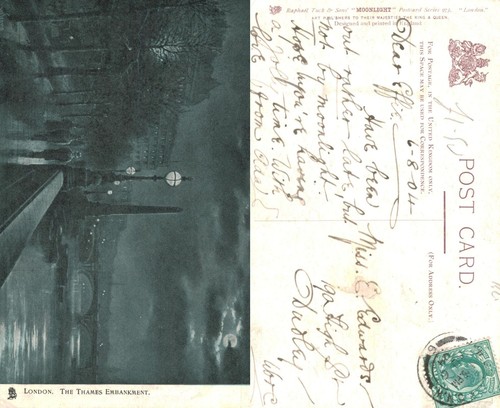 LONDON. THE THAMES EMBANKMENT.
Raphael Tuck & Sons' "MOONLIGHT" Postcard Series 973. "London."
ART PUBLISHERS TO THEIR MAJESTIES THE KING & QUEEN.
Designed and printed in England
FOR POSTAGE, IN THE UNITED KINGDOM ONLY,
THIS SPACE MAY BE USED FOR CORRESPONDENCE.
(FOR ADDRESS ONLY.)
POST CARD.
6-8-04
Dear Effie,
Have been
out rather late but
not by moonlight.
Hope you're having
a jolly time. With
love from
Miss. E. Edwards
High St
Dudley